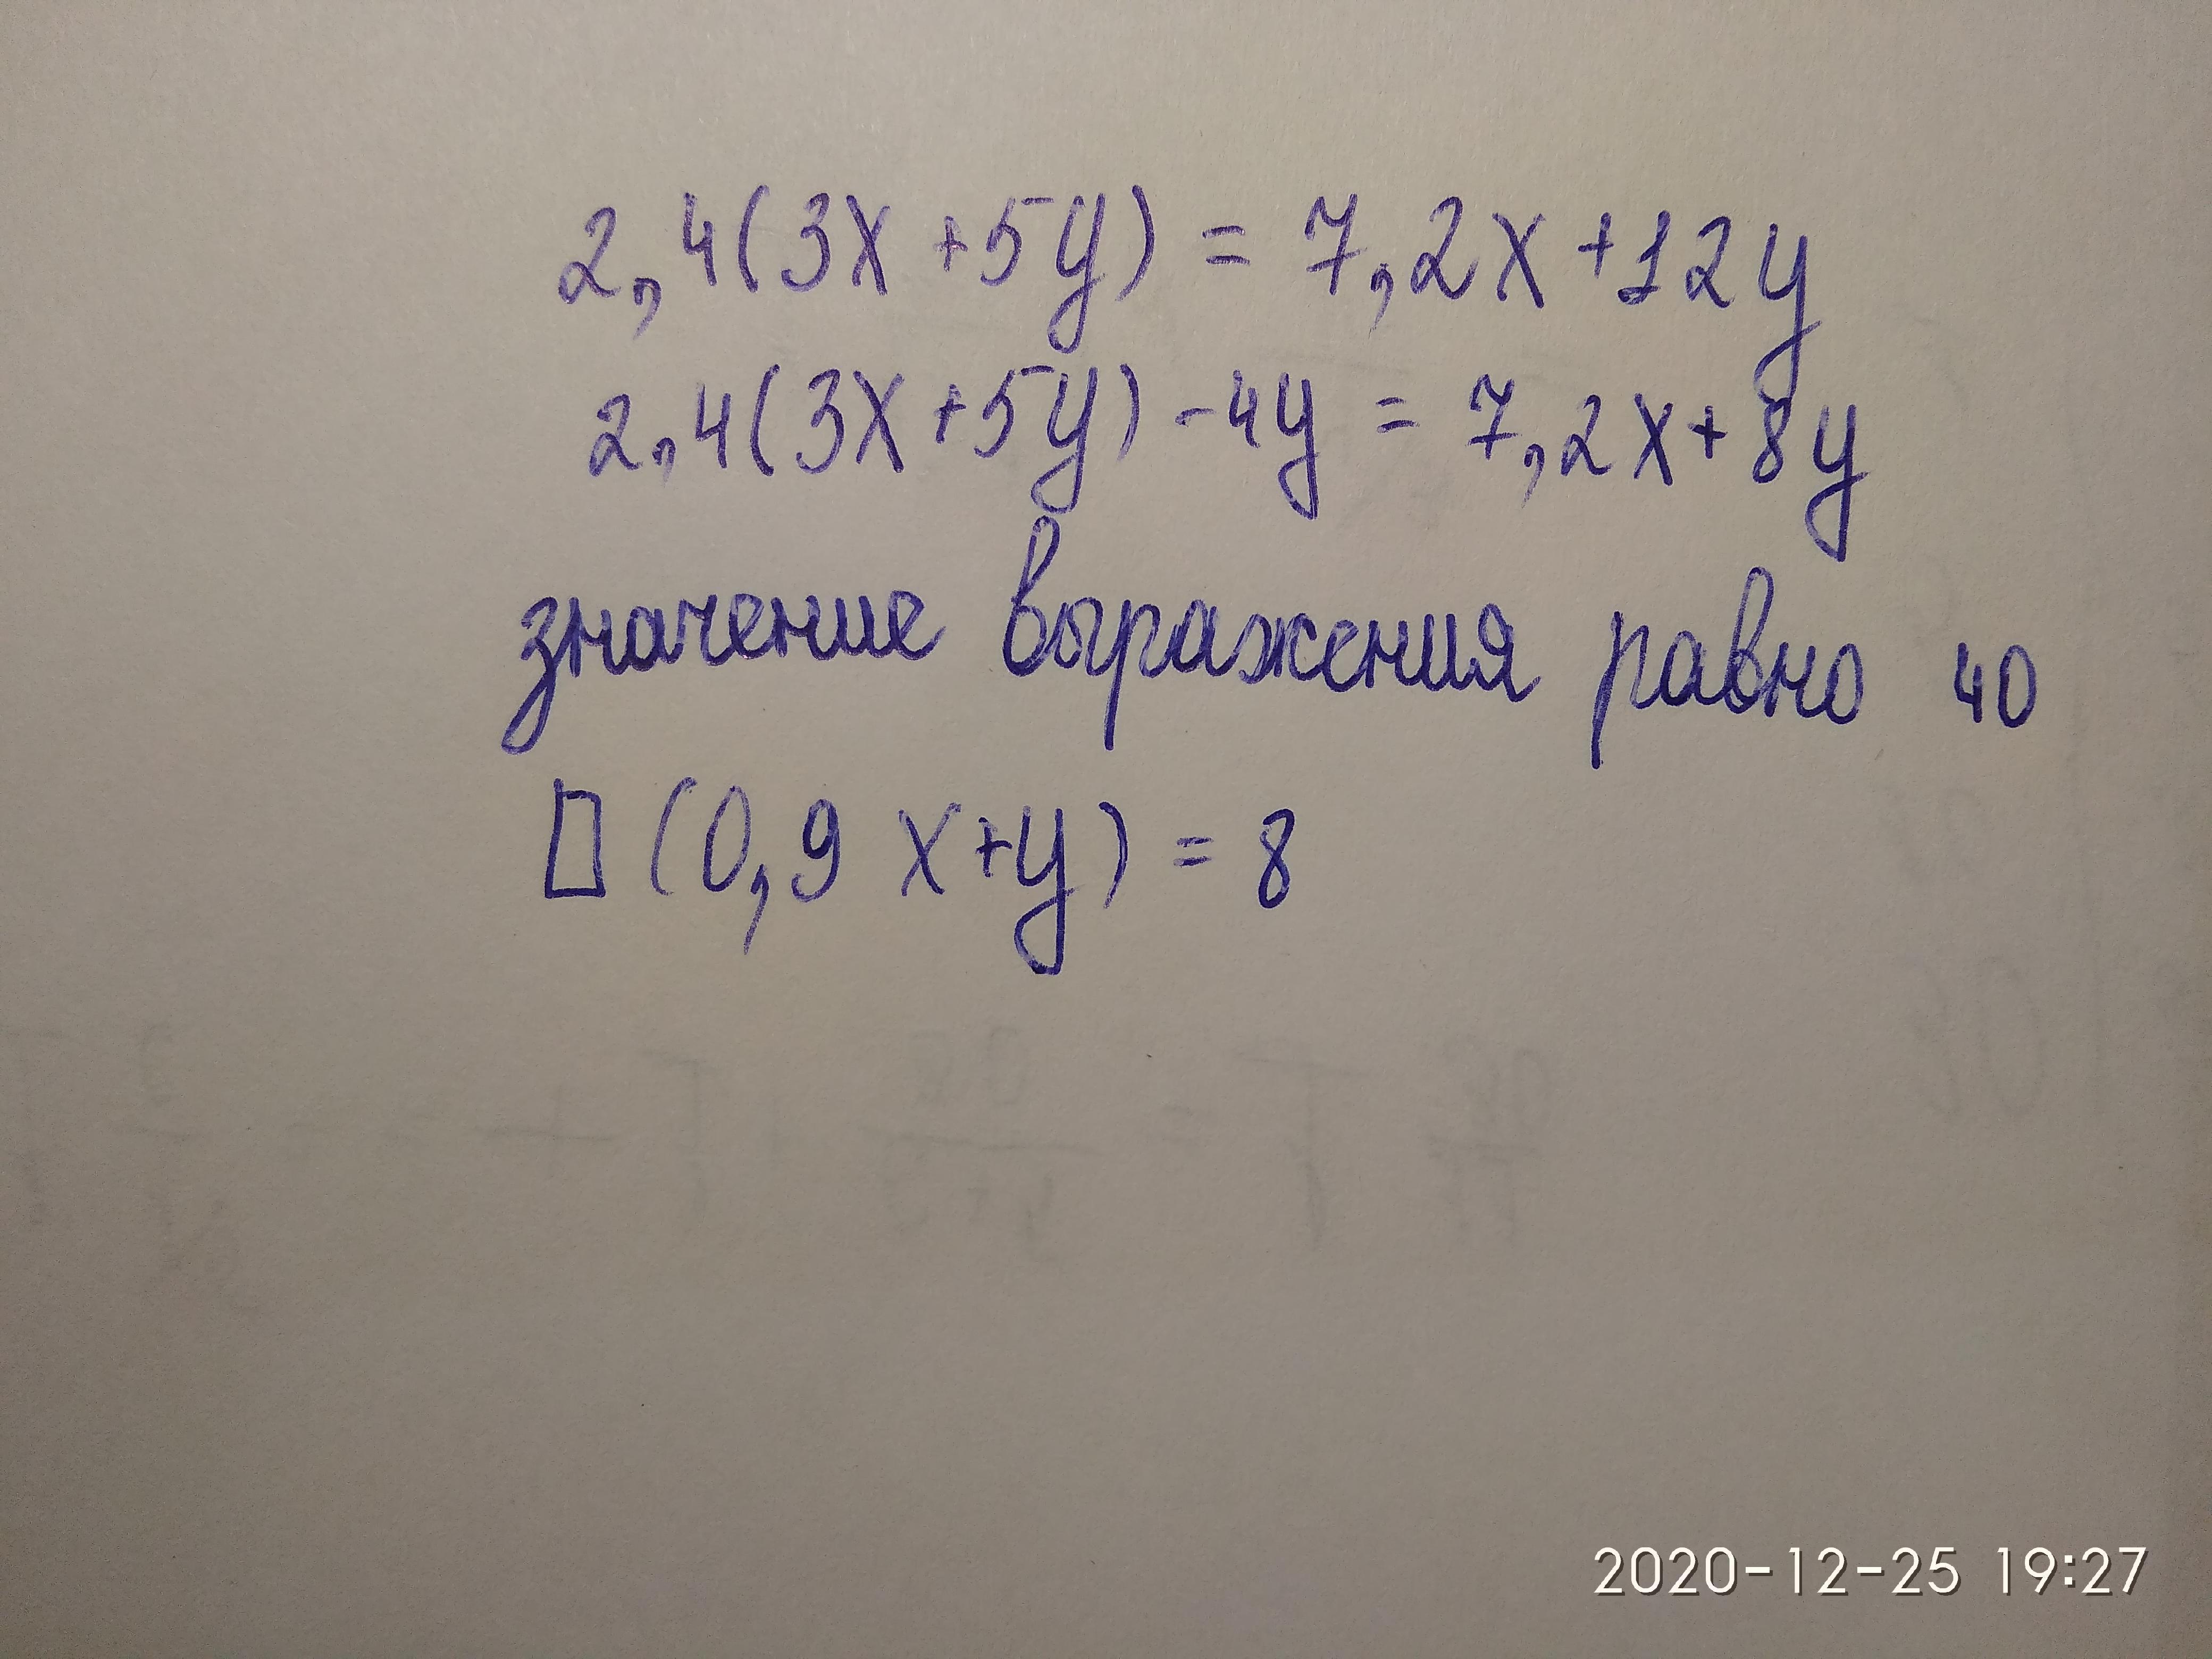 2,4(3x+5y) = 7,2x+12y
2,4(3x+5y)-4y = 7,2x+8y
значение выражения равно 40
▯ (0,9 x+y) = 8
2020-12-25 19:27